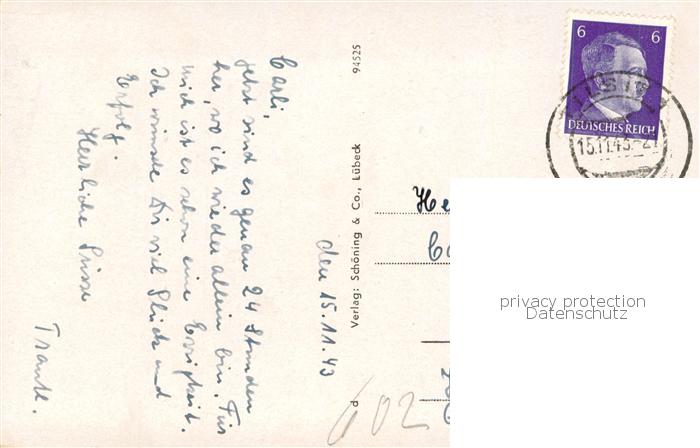 den 15.11.43
Carli,
jetzt sind es genau 24 Stunden
her, wo ich wieder allein bin. Für
mich ist es schon eine Ewigkeit.
Ich wünsche Dir viel Glück und
Erfolg.
Herzliche Grüsse
Traute.
94525
Verlag: Schöning & Co., Lübeck
d
602
6 6
DEUTSCHES REICH
15.11.43
He
privacy protection
Datenschutz